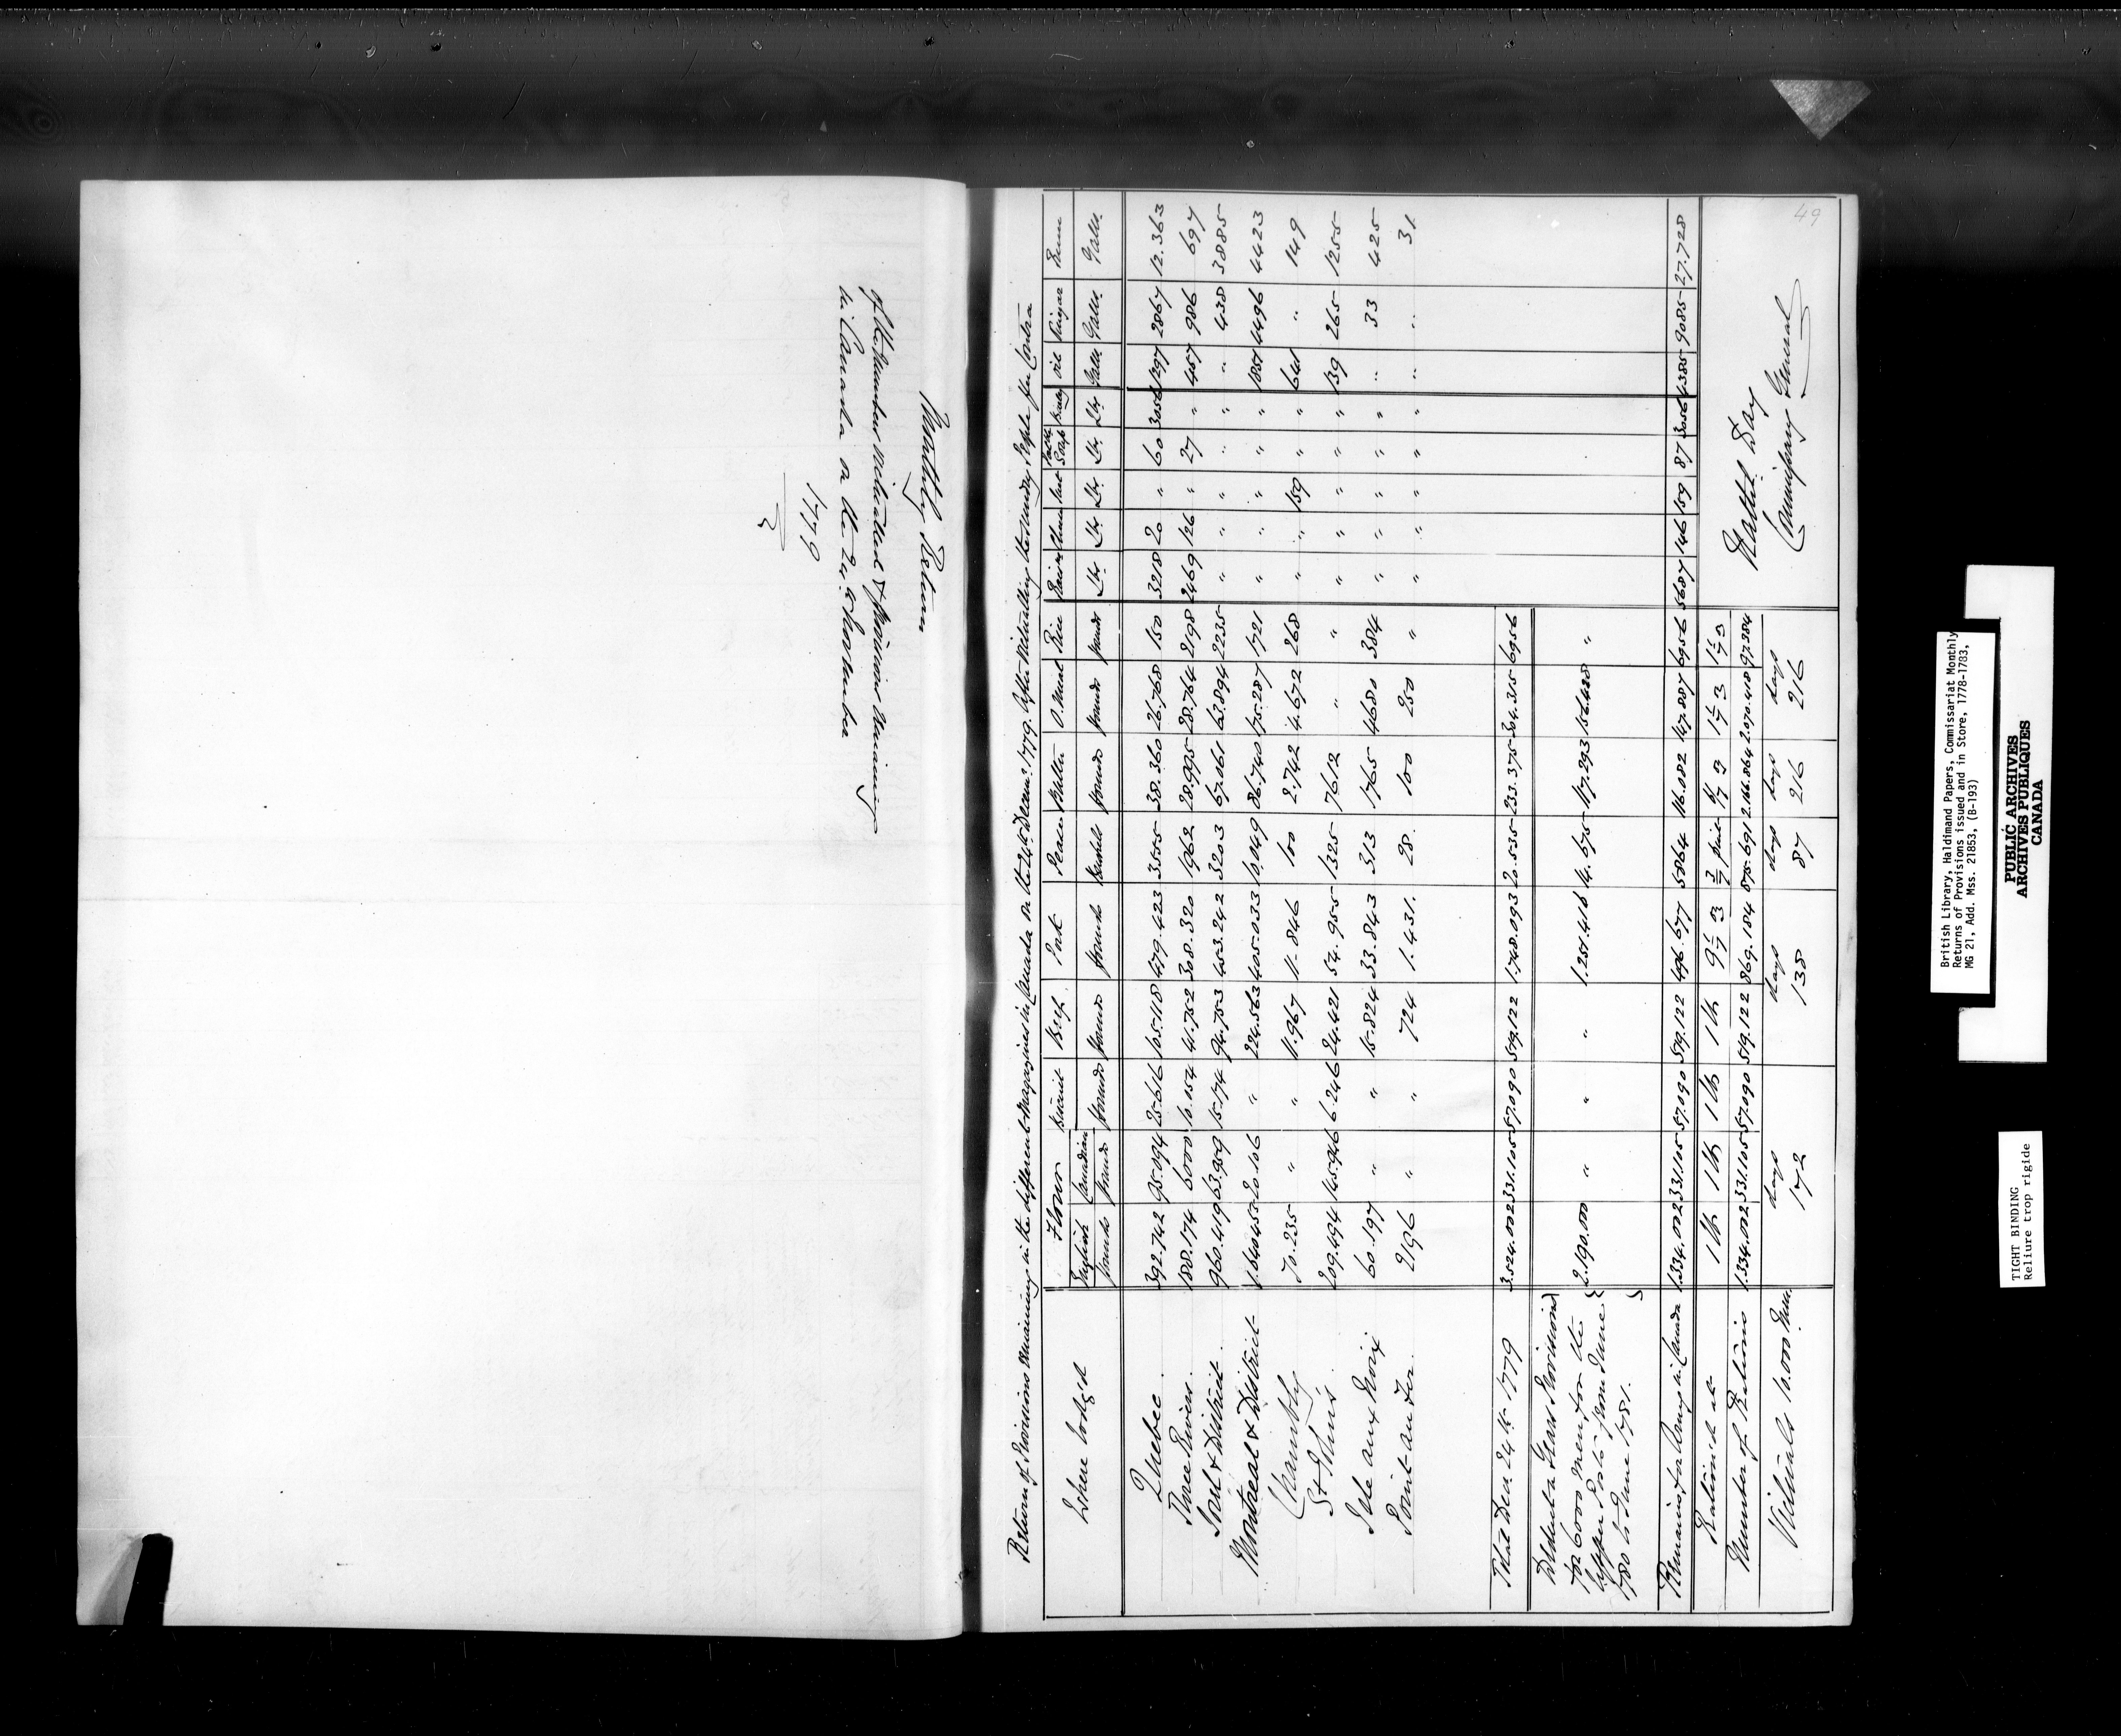 Monthly Return
of the Numbers Victualled & Provisions Remaining
in Canada on the 24th November
1779
2
49
Return of Provisions Remaining in the different Magazines in Canada on the 24th Decemr. 1779. After Victualling the sundry People per Contra
Where Lodged Flour Biscuit Beef Pork Pease Butter O.Meal Rice Raisins Rum
English Canadian
pounds pounds pounds pounds pounds Bushells pounds pounds pounds Lbs Lbs Lbs Lbs Lbs Galls Galls Galls.
Quebec 392.742 95.094 25.616 105.118 479.423 3555 38.360 26.768 150 3218 20 " 60 3056 1297 2867 12.363
Three Rivers. 188.174 6000 10.154 41.752 308.320 1962 28.995 28.764 2198 2469 126 " 27 " 457 986 697
Sorel & District. 960.419 63.959 15.174 94.753 453.242 3203 67.061 63.894 2235 " " " " " " 438 3885
Montreal & District 1.640.453 20.106 " 224.563 405.033 10.049 86.740 175.287 1721 " " " " " 1851 4496 4423
Chambly 70.235 " " 11.967 11.846 100 2.742 4.672 268 " " 159 " " 641 " 149
St Johns 209.494 145.946 6.246 24.421 54.955 1325 7612 " " " " " " " 139 265 1255
Isle aux Noix 60.197 " " 15.824 33.843 313 1765 4680 384 " " " " " " 33 425
Point au Fer. 2196 " " 724 1.431. 28. 100 250 " " " " " " " " 31
Total Decr. 24th 1779 3.524.002 331.105 57.090 519.122 1.748.093 20.535 233.375 304.315 6956
Deduct a Years Provisions
for 6000 Men for the
Upper Posts from June
1780 to June 1781. 2.190.000 " " " 1.251.416 14.675 117.293 156.428 "
Remains for Army in Canada 1.334.002 331.105 57.090 519.122 496.677 5864 116.082 147.887 6956 5687 146 159 87 3056 4385 9085 27.728
Rationed at 1 lb 1 lb 1 lb 1 lb 9 1/7 3/7 pint 1 1/7
Number of Rations 1.334.002 331.105 57.090 519.122 869.184 875.691 2.166.864 2.070.418 97.384
Victuals 10.000 Men. days 172 days 138 days 87 days 216 days 216
Nathl. Day
Commissary General
British Library, Haldimand Papers, Commissariat Monthly
Returns of Provisions issued and in Store, 1778-1783,
MG 21, Add. Mss. 21853, (B-193)
PUBLIC ARCHIVES
ARCHIVES PUBLIQUES
CANADA
TIGHT BINDING
Reliure trop rigide